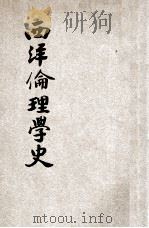 西洋倫理學史
mtoou.info